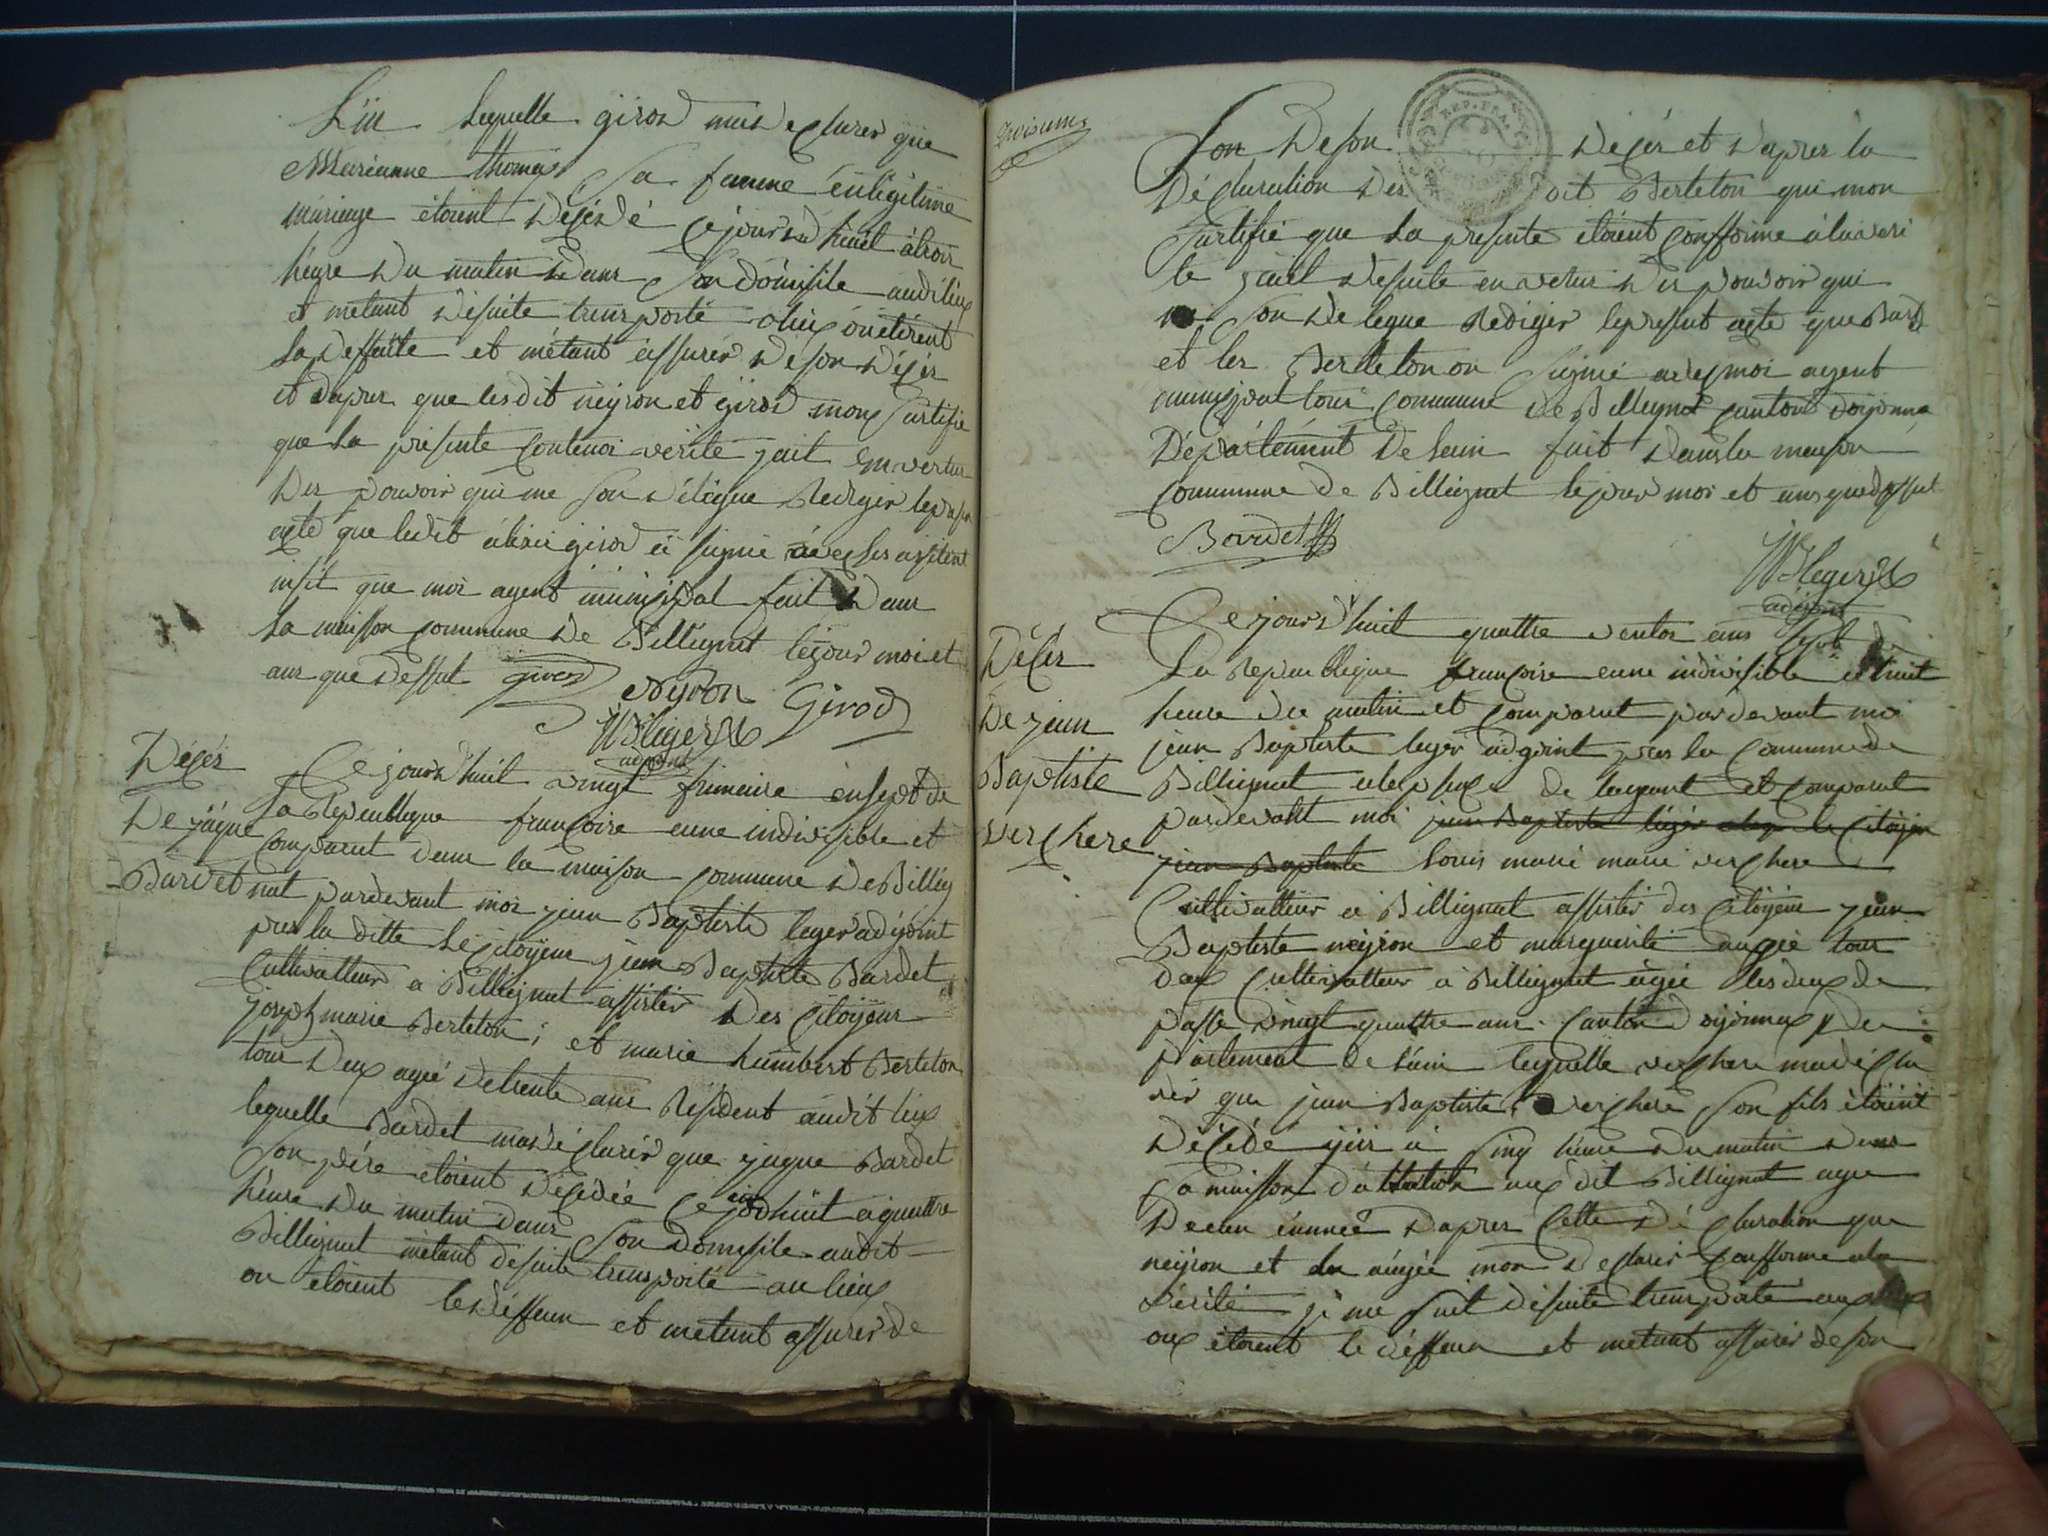 L'ain lequelle girod mais declarer que
Marianne thomas sa famme enlegitime
mariage étoient décédé cejourdhuit àtrois
heure du matin dans son domisile audilieux
et métant desuite transporté olieux ouétoient
la deffunte et métant assurér déson décés
et dapres que lesdit neyron et girod monx Sertifie
que la présente contenoi vérité jait en vertue
des pouvoir qui me son délégue Redigér lepresen
acte que ledit girod à signié avec les assistent
insit que moi agent municipal fait dans
la maison commune de Billignat lejour moi et
ans que dessut girod
neyron Girod
JB léger
adjoint
Décés
De jàque
Bardet
Cejourdhuit vingt frimaire ensept de
la Republique françoise eune indivisible et
comparut dans la maison commune de Billig
nat pardevant moi jean Baptiste leger adjoint
pres la ditte le citoyen jean Baptiste Bardet
Cultivatteur a Billignat assister des Citoyens
joseph marie Berteton ; et marie humbert Berteton
tous deux agé detrente ans Résident audit lieux
lequelle Bardet ma déclarér que jaque Bardet
son pére étoient décédée cejourdhuit a quattre
héure du matin dans son domisile audit
Billignat métant desuite transporté au lieux
ou étoient le déffeun et métant assurer de
Son Deson Décés et dapres la
déclaration des dit Berteton qui mon
Sertifié que la presente étoient confforme àlavéri
té jait desuite en vertus des pouvoir qui
son delegue Rediger lepresent acte que Bardet
et les Berteton on signié avec moi agent
municipal tous commune de Billignat canton doyonna
Département de lain fait dans la maison
commune de Billignat lejour moi et ans que dessut
Bardet
JB leger
adjoint
Décés
De jean
Baptiste
verchere
Cejourdhuit quattre ventos ans Sept de
la Republique françoise eune indivisible à huit
heure du matin et comparut pardevant moi
jean Baptiste leger adjoint pres la commune de
Billignat de lagent et comparut
pardevant moi jean Baptiste léger le Citoyen
jean Baptiste louis marie marie verchere
Cultivatteur a Billignat assister des Citoyens jean
Baptiste neyron et marguerite augée tous
deux Cultivatteur a Billignat agée les deux de
passé vingt quattre ans canton doyonnax De
partement de lain lequelle verchere ma déclа
rér que jean Baptiste verchere son fils étoient
Décédé yeir a sinq heure du matin dans
sa maison aux dit Billignat agee
Deeun énnnée dapres Cette Dé claration que
neyron et la augée mon declarer confforme ala
vérité je me suit désuite transporté aux lieux
oux étoient le déffeun et métant assurér de son